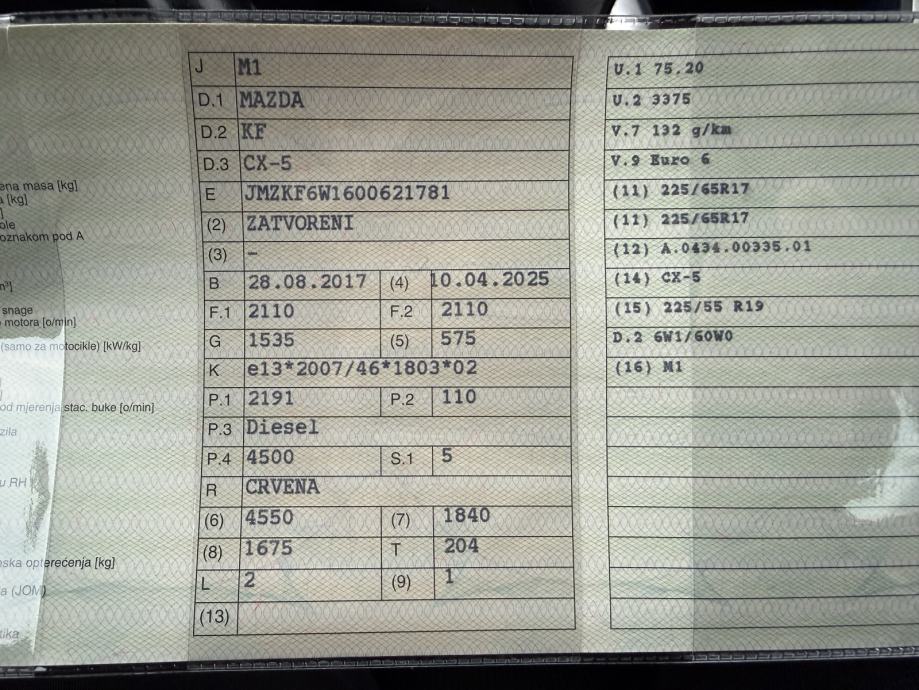 ena masa [kg]
a [kg]
]
ole
oznakom pod A
m³]
snage
motora [o/min]
(samo za motocikle) [kW/kg]
]
od mjerenja stac. buke [o/min]
zila
u RH
ska opterećenja [kg]
a (JOM)
tika
J M1
D.1 MAZDA
D.2 KF
D.3 CX-5
E JMZKF6W1600621781
(2) ZATVORENI
(3) -
B 28.08.2017 (4) 10.04.2025
F.1 2110 F.2 2110
G 1535 (5) 575
K e13*2007/46*1803*02
P.1 2191 P.2 110
P.3 Diesel
P.4 4500 S.1 5
R CRVENA
(6) 4550 (7) 1840
(8) 1675 T 204
L 2 (9) 1
(13)
U.1 75.20
U.2 3375
V.7 132 g/km
V.9 Euro 6
(11) 225/65R17
(11) 225/65R17
(12) A.0434.00335.01
(14) CX-5
(15) 225/55 R19
D.2 6W1/60W0
(16) M1